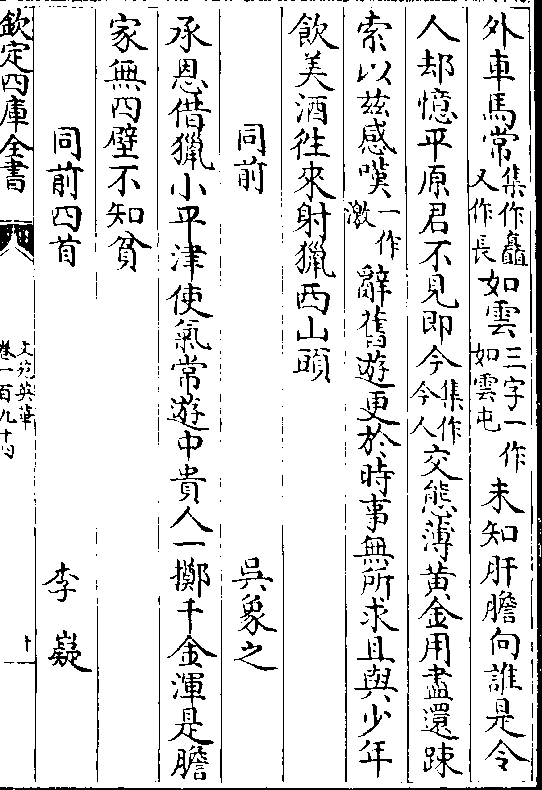 外車馬常集作矗又作長如雲三字一作如雲屯未知肝膽向誰是令
人却憶平原君不見即今集作今人交態薄黄金用盡還踈
索以兹感嘆一作激辭舊遊更於時事無所求且與少年
飲美酒徃來射獵西山頭
同前 吳象之
承恩借獵小平津使氣常遊中貴人一擲千金渾是膽
家無四壁不知貧
同前四首 李嶷
欽定四庫全書
文苑英華
卷一百九十四
十